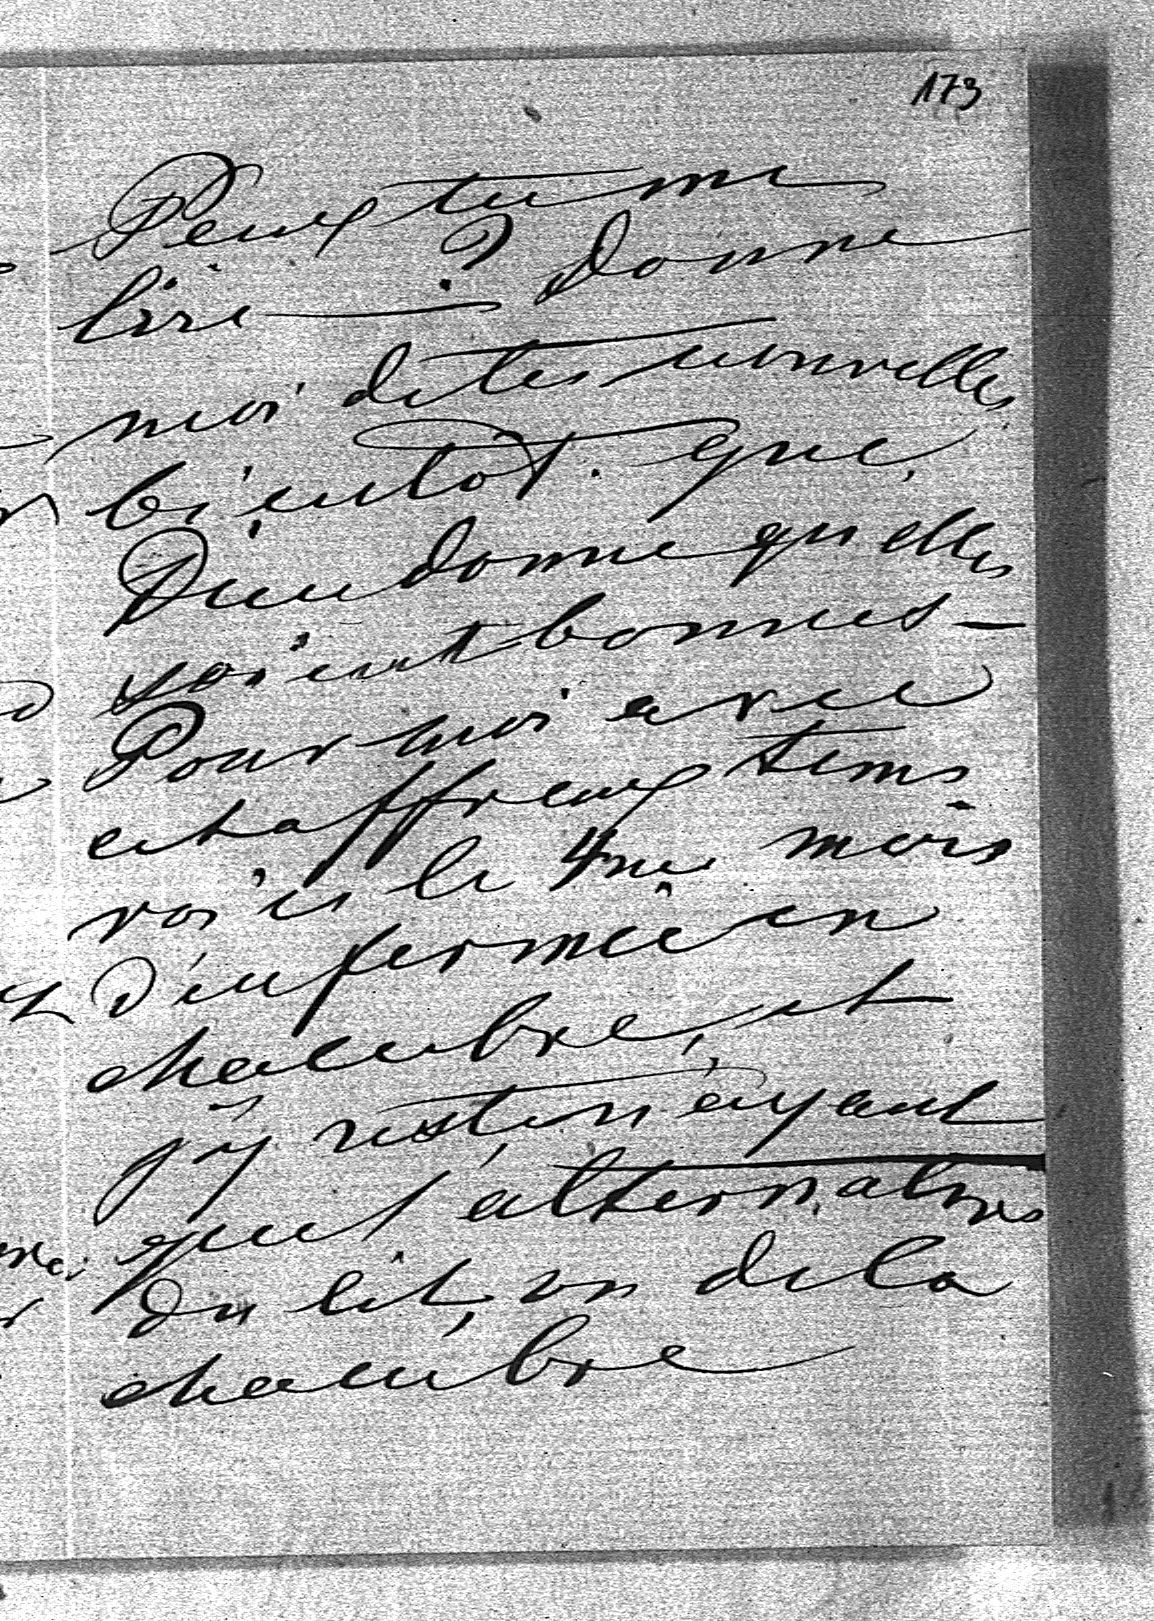 173
Peux tu me
lire ? Donne
moi de tes nouvelles
bientot. que
Dieu donne qu'elles
soient bonnes —
Pour moi avec
cet affreux tems
voici le 4me mois
d'enfermée en
chambre, et
j'y reste n'ayant
que l'alternative
du lit, ou de la
chambre